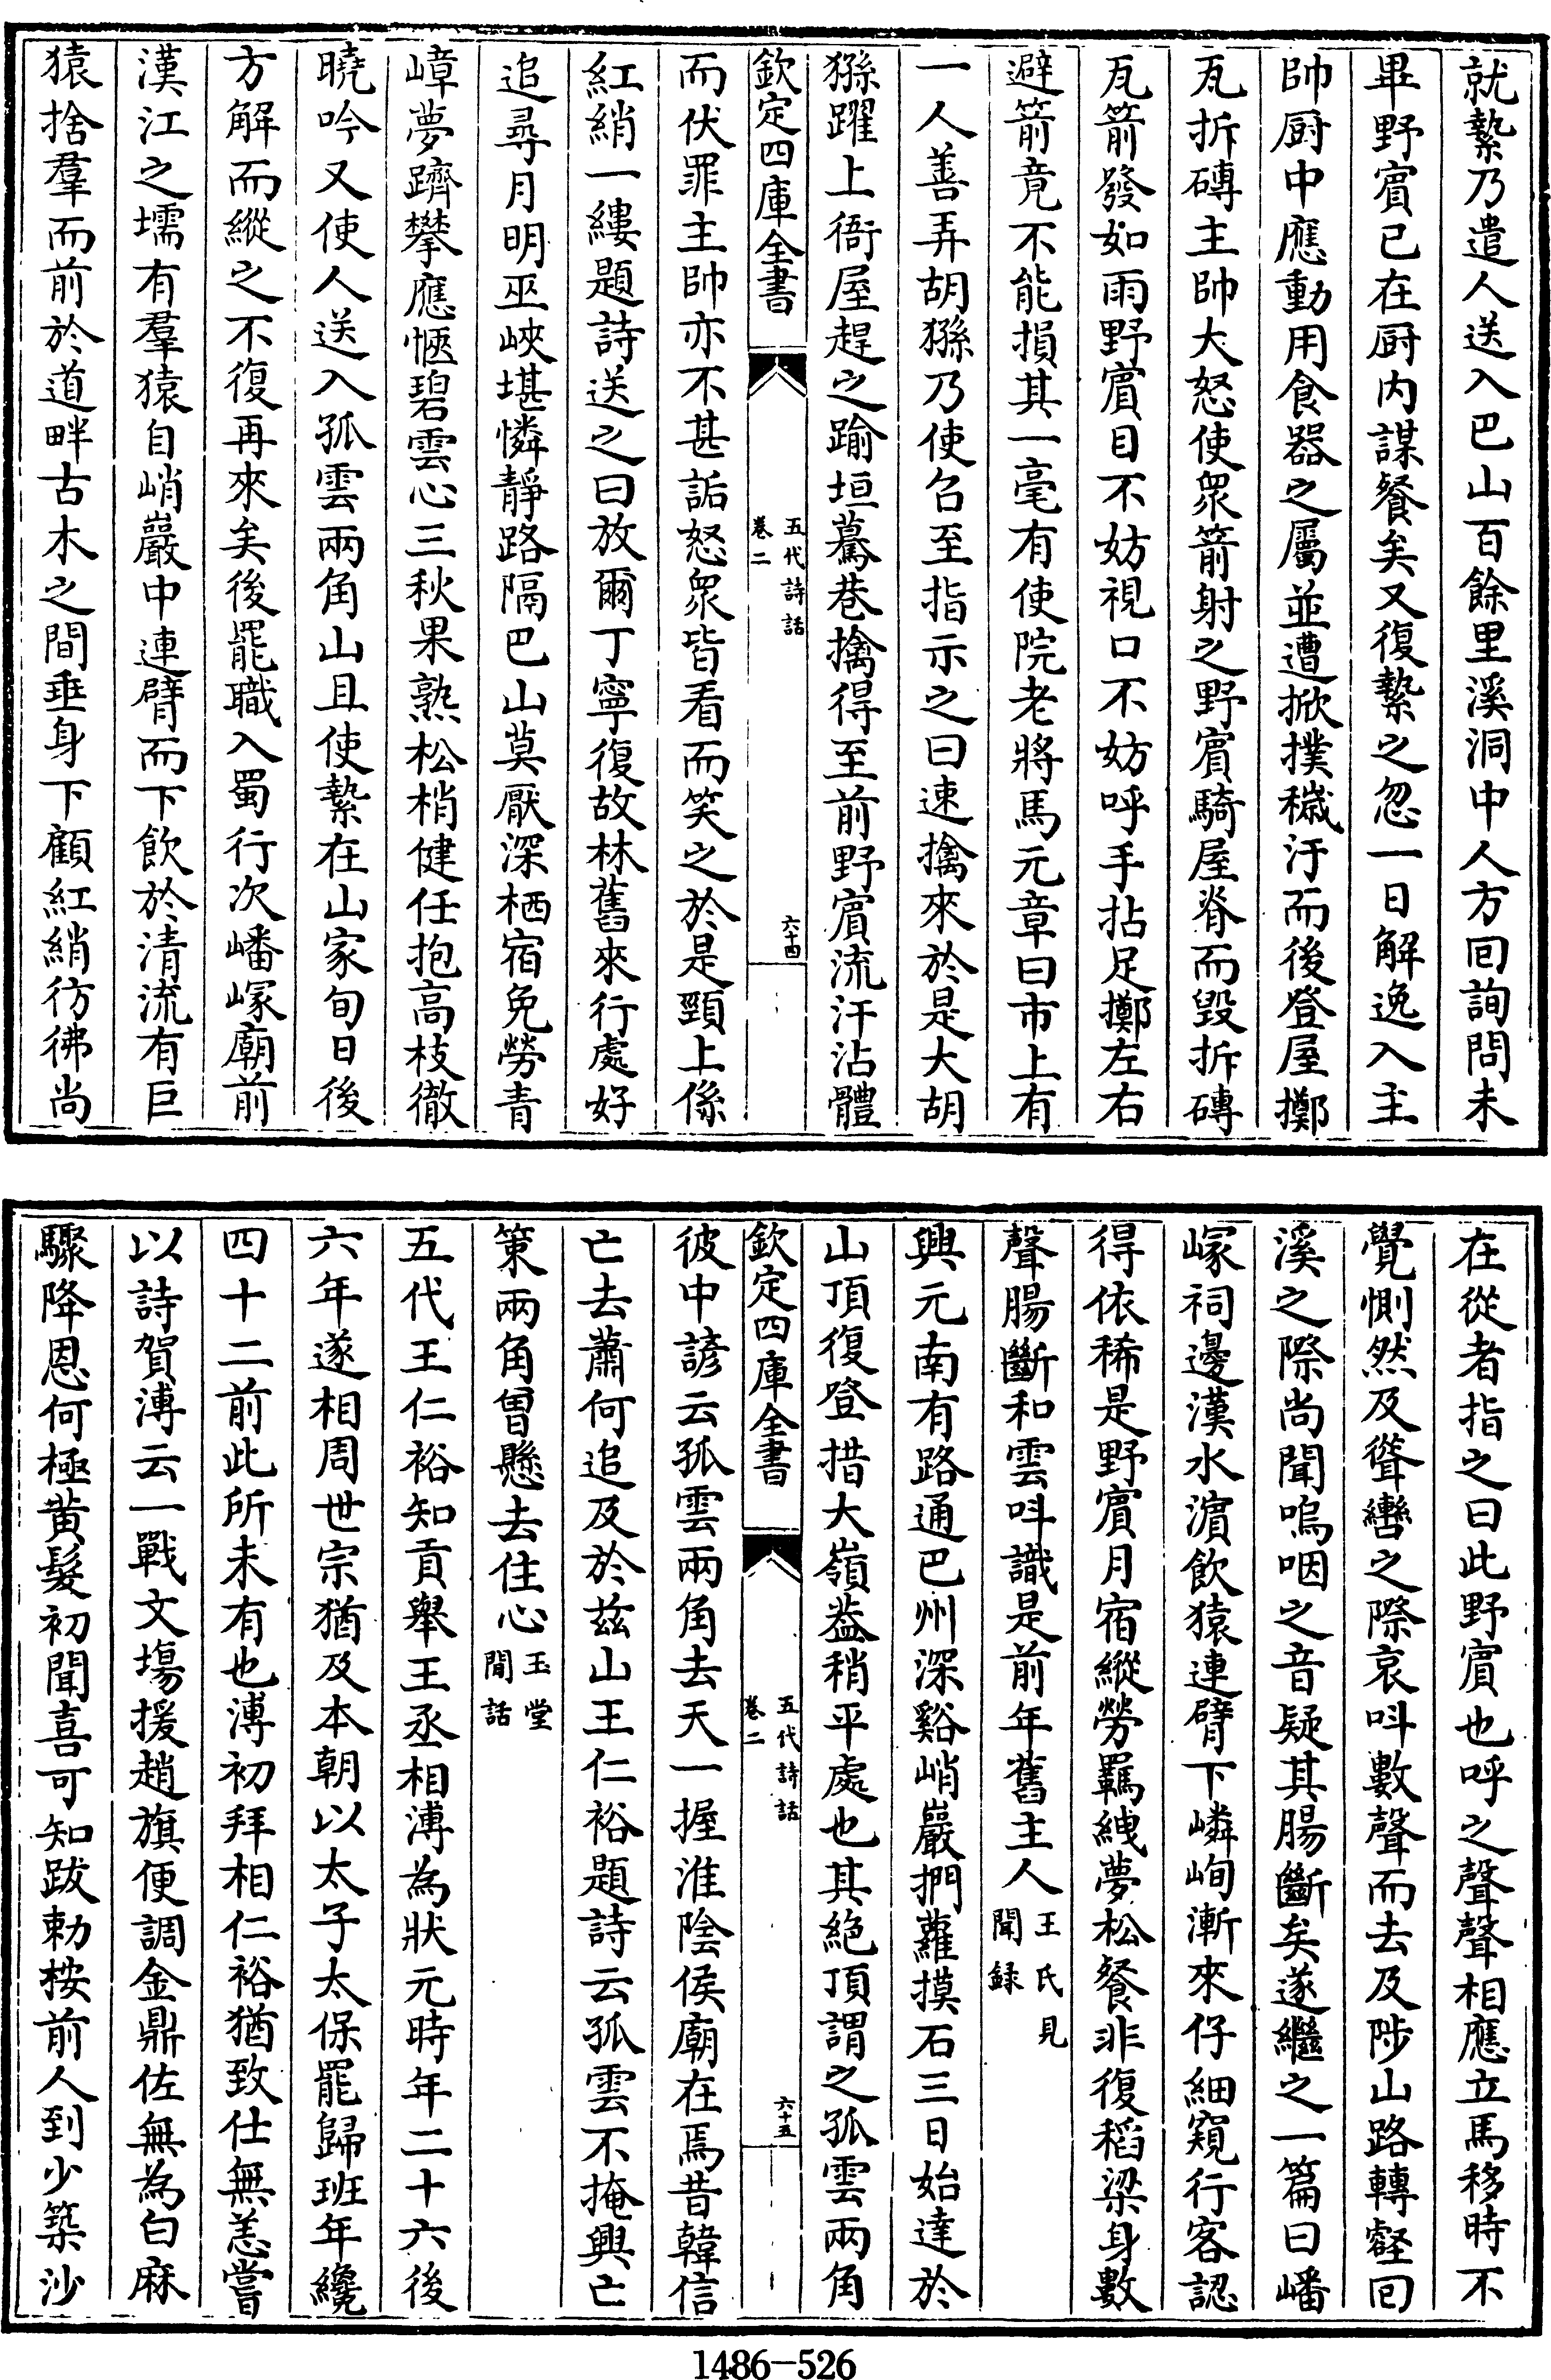 就縶乃遣人送入巴山百餘里溪洞中人方回詢問未
畢野賓已在厨内謀餐矣又復縶之忽一日解逸入主
帥厨中應動用食器之屬並遭掀撲穢汙而後登屋擲
瓦拆磚主帥大怒使衆箭射之野賓騎屋脊而毀拆磚
瓦箭發如雨野賓目不妨視口不妨呼手拈足擲左右
避箭竟不能損其一毫有使院老將馬元章曰市上有
一人善弄胡猻乃使召至指示之曰速擒來於是大胡
猻躍上衙屋趕之踰垣驀巷擒得至前野賓流汗沾體
欽定四庫全書
五代詩話
卷二
六十四
而伏罪主帥亦不甚詬怒衆皆看而笑之於是頸上係
紅綃一縷題詩送之曰放爾丁寧復故林舊來行處好
追尋月明巫峽堪憐靜路隔巴山莫厭深栖宿免勞青
嶂夢躋攀應愜碧雲心三秋果熟松梢健任抱高枝徹
曉吟又使人送入孤雲兩角山且使縶在山家旬日後
方解而縱之不復再來矣後罷職入蜀行次嶓冢廟前
漢江之壖有羣猿自峭巖中連臂而下飲於清流有巨
猿捨羣而前於道畔古木之間垂身下顧紅綃彷彿尚
在從者指之曰此野賓也呼之聲聲相應立馬移時不
覺惻然及聳轡之際哀叫數聲而去及陟山路轉壑回
溪之際尚聞嗚咽之音疑其腸斷矣遂繼之一篇曰嶓
冢祠邊漢水濵飲猿連臂下嶙峋漸來仔細窺行客認
得依稀是野賓月宿縱勞羈绁夢松餐非復稻梁身數
聲腸斷和雲叫識是前年舊主人王氏見
聞録
興元南有路通巴州深谿峭巖捫蘿摸石三日始達於
山頂復登措大嶺葢稍平處也其絶頂謂之孤雲兩角
欽定四庫全書
五代詩話
卷二
六十五
彼中諺云孤雲兩角去天一握淮陰侯廟在焉昔韓信
亡去蕭何追及於兹山王仁裕題詩云孤雲不掩興亡
策兩角曽懸去住心玉堂
閒話
五代王仁裕知貢舉王丞相溥為狀元時年二十六後
六年遂相周世宗猶及本朝以太子太保罷歸班年纔
四十二前此所未有也溥初拜相仁裕猶致仕無恙嘗
以詩賀溥云一戰文場援趙旗便調金鼎佐無為白麻
驟降恩何極黄髪初聞喜可知跋勅按前人到少築沙
1486-526